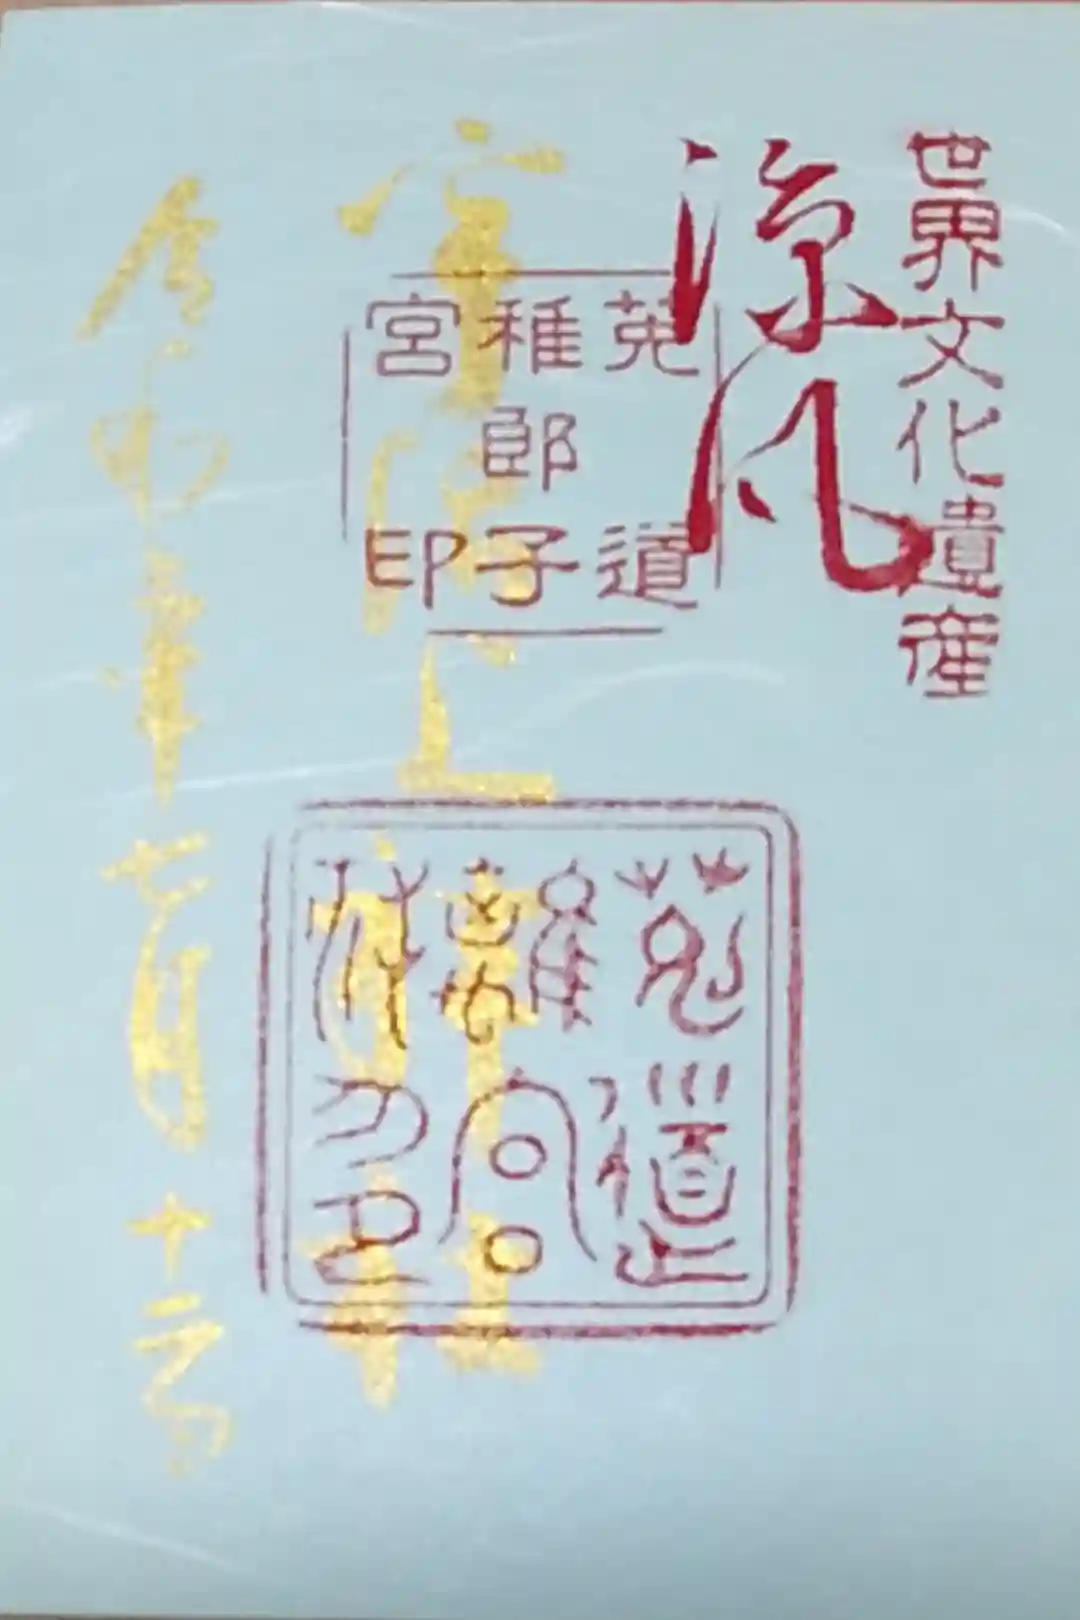 世界文化遺産
涼風
宇治上神社
菟道
稚郎子
宮印
菟道
離宮
令和
年
七月
十